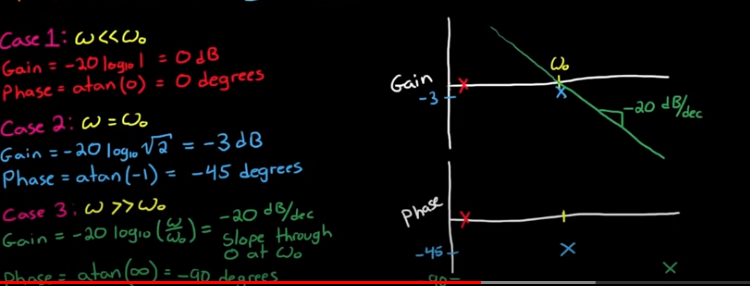 Case 1: ω<<ω₀
Gain = -20 log₁₀ 1 = 0 dB
Phase = atan(0) = 0 degrees
Case 2: ω = ω₀
Gain = -20 log₁₀ √2 = -3 dB
Phase = atan(-1) = -45 degrees
Case 3: ω >> ω₀
Gain = -20 log₁₀ (ω/ω₀) = -20 dB/dec
Slope through
0 at ω₀
Phase = atan(∞) = -90 degrees
Gain
-3
ω₀
-20 dB/dec
Phase
-45
-90